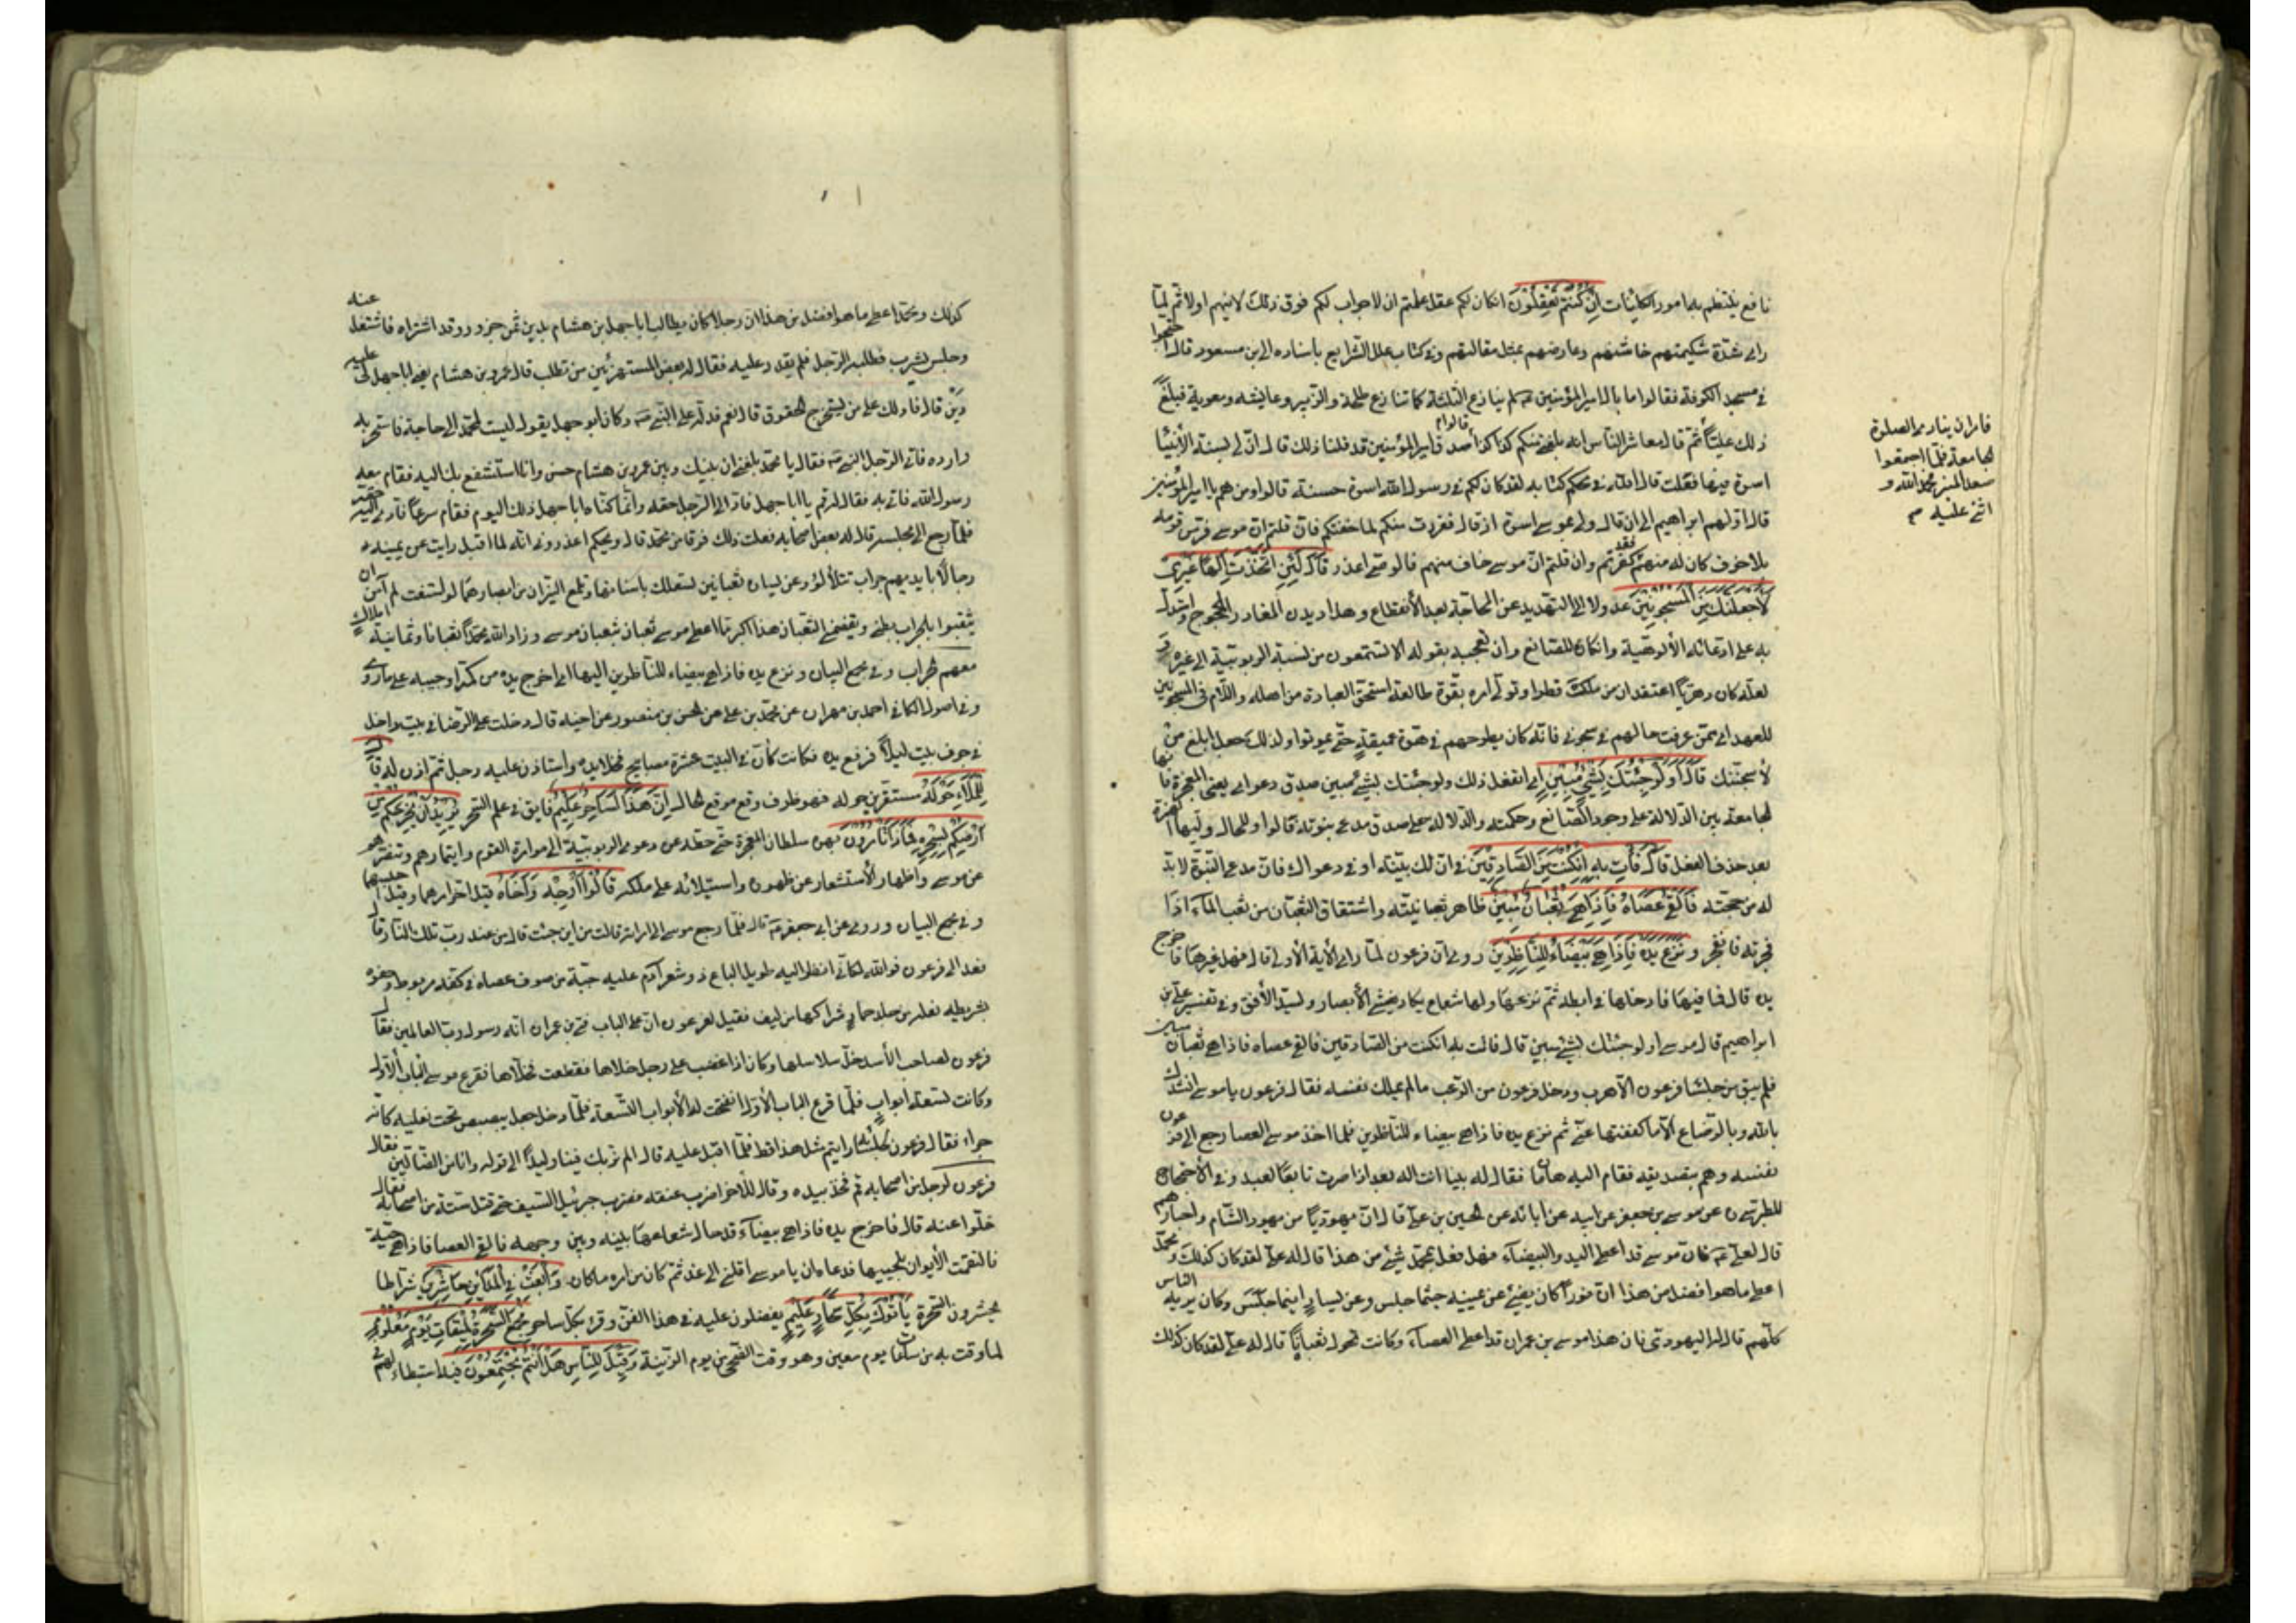 نافع ينتظم به امور الكائنات ان كنتم تعقلون ان كان لكم عقل علمتم ان لا جواب لكم فوق ذلك لاينهم اولا ثم لما
راى شدة شكيمتهم خاشنهم وعارضهم بمثل مقالتهم وفى كتاب علل الشرايع باسناده الى بن مسعود قال احتجوا
فى مسجد الكوفة فقالوا ما بال امير المؤمنين لم ينازع الثلثة كما تنازع طلحة والزبير وعايشه ومعوية فبلغ
ذلك عليا ثم قال معاشر الناس انه بلغنى عنكم كذا كذا قالوا صدق امير المؤمنين قد قلنا ذلك قال ان لى بسنة الأنبياء
اسوة فيما فعلت قال الله فى محكم كتابه لقد كان لكم فى رسول الله اسوة حسنة قالوا ومن هم يا امير المؤمنين
قال اولهم ابراهيم الى ان قال ولى بموسى اسوة اذ قال ففررت منكم لما خفتكم فان قلتم ان موسى فر من قومه
بلا خوف كان له منهم فقد كفرتم وان قلتم ان موسى خاف منهم فالوصى اعذر قال لئن اتخذت الها غيرى
لأجعلنك من المسجونين عدولا الى التهديد عن المحاجة بعد الأنقطاع وهذا ديدن المعاند المحجوج
به على ادعائه الألوهية وانكاره الصانع وان تعجبه بقوله الا تستمعون من نسبة الربوبية الى غيره
لعله كان دهريا اعتقد ان من ملك قطرا وتولى امره بقوة طالعه استحق العبادة من اهله واللام فى المسجونين
للعهد اى ممن عرفت حالهم فى سجونى فانه كان يطرحهم فى هوة عميقة حتى يموتوا ولذلك جعل ابلغ من
لأسجننك قال اولو جئتك بشئ مبين اى اتفعل ذلك ولو جئتك بشئ مبين صدق دعواى يعنى المعجزة فانها
الجامعة بين الدلالة على وجود الصانع وحكمته والدلالة على صدق مدعى نبوته قالوا و للحال وليها الهمزة
بعد حذف الفعل قال فأت به ان كنت من الصادقين فى ان لك بينة او فى دعواك فان مدعى النبوة لا بد
له من حجة فالقى عصاه فاذا هى ثعبان مبين ظاهر ثعبانيته واشتقاق الثعبان من ثعب الماء اذا
فجرته فانفجر ونزع يده فاذا هى بيضاء للناظرين روى ان فرعون لما راى الأية الأولى قال فهل غيرها فاخرج
يده قال فما فيها فادخلها فى ابطه ثم نزعها ولها شعاع يكاد يغشى الأبصار ويسد الأفق وفى تفسير على بن
ابراهيم قال موسى اولو جئتك بشئ مبين قال فأت به ان كنت من الصادقين فالقى عصاه فاذا هى ثعبان مبين
فلم يبق من جلساء فرعون الا هرب ودخل فرعون من الرعب ما لم يملك نفسه فقال فرعون يا موسى انشدك
بالله وبالرضاع الا ما كففتها عنى ثم نزع يده فاذا هى بيضاء للناظرين فلما اخذ موسى العصا رجع الى فرعون
نفسه وهم بتصديقه فقام اليه هامان فقال له بينا انت اله تعبد اذا صرت تابعا لعبد وفى الأحتجاج
للطبرسى عن موسى بن جعفر عن ابيه عن ابائه عن الحسين بن على قال ان يهوديا من يهود الشام واحبارهم
قال لعلى فان موسى قد اعطى اليد البيضاء فهل فعل بمحمد شئ من هذا قال له على لقد كان كذلك ومحمد
اعطى ما هو افضل من هذا ان نورا كان يضئ عن يمينه حيثما جلس وعن يساره اينما جلس وكان يريه الناس
كلهم قال له اليهودى فان هذا موسى بن عمران قد اعطى العصا وكانت تحول ثعبانا قال له على لقد كان كذلك
فامر ان ينادى الصلوة
الجامعة فلما اجتمعوا
صعد المنبر فحمد الله و
اثنى عليه م
كذلك ومحمد اعطى ما هو افضل من هذا ان رجلا كان يطالب ابا جهل بن هشام بدين ثمن جزور وقد اشتراه فاشتغل عنه
وجلس يشرب فطلبه الرجل فلم يقدر عليه فقال له بعض المستهزئين من تطلب قال عمرو بن هشام يعنى ابا جهل لى عليه
دين قال فادلك على من يستخرج الحقوق قال نعم فدله على النبى وكان ابو جهل يقول ليت لمحمد الى حاجة فاسخر به
وارده فاتى الرجل النبى فقال يا محمد بلغنى ان بينك وبين عمرو بن هشام حسن وانا استشفع بك اليه فقام معه
رسول الله فاتى بابه فقال له قم يا ابا جهل فاد الى الرجل حقه وانما كناه ابا جهل ذلك اليوم فقام مسرعا فادى اليه حقه
فلما رجع الى مجلسه قال له بعض اصحابه فعلت ذلك فرقا من محمد قال ويحكم اعذرونى انه لما اقبل رايت عن يمينه
رجالا بايديهم حراب تتلألأ وعن يساره ثعبانين تصطك باسنانهما وتلمع النيران من ابصارهما لو امتنعت لم آمن ان
يثقبوا بالحراب بطنى ويقضمنى الثعبان هذا اكبر مما اعطى موسى ثعبان بثعبان موسى وزاد الله محمدا ثعبانا وثمانية املاك
معهم الحراب وفى مجمع البيان ونزع يده فاذا هى بيضاء للناظرين اليها اى اخرج يده من كمه او جيبه على ما روى
وفى اصول الكافى احمد بن مهران عن محمد بن على عن الحسن بن منصور عن اخيه قال دخلت على الرضا فى بيت داخل
فى جوف بيت ليلا فرفع يده فكانت كأن فى البيت عشرة مصابيح واستاذن عليه رجل فخلا يده ثم اذن له قال
للملاء حوله مستقرين حوله فهو ظرف وقع موقع الحال ان هذا لساحر عليم فايق فى علم السحر يريد ان يخرجكم من
ارضكم بسحره فماذا تأمرون بهره سلطان المعجزة حتى حطه عن دعوى الربوبية الى موامرة القوم وايتمارهم وتنفيرهم
عن موسى واظهار الأستشعار عن ظهوره واستيلائه على ملكه قالوا ارجه واخاه قيل اخر امرهما وقيل احبسهما
وفى مجمع البيان وروى عن ابى جعفر قال فلما رجع موسى الى امراته قالت من اين جئت قال من عند رب تلك النار قال
فغدا الى فرعون فوالله لكانى انظر اليه طويل الباع ذو شعر آدم عليه جبة من صوف عصاه فى كفه مربوط حقوه
بشريط نعله من جلد حمار شراكها من ليف فقيل لفرعون ان على الباب فتى بن عمران انه رسول رب العالمين فقال
فرعون لصاحب الأسد خل سلاسلها وكان اذا غضب على رجل خلاها فقطعته فخلاها فقرع موسى الباب الأول
وكانت تسعة ابواب فلما قرع الباب الأول انفتحت له الأبواب التسعة فلما دخل جعل يبصبصن تحت نعليه كانه
جراء فقال فرعون لجلسائه ارايتم مثل هذا قط فلما اقبل عليه قال الم نربك فينا وليدا الى قوله وانا من الضالين فقال
فرعون لرجل من اصحابه قم فخذ بيده وقال للأخر اضرب عنقه فضرب جبرئيل السيف حتى قتل ستة من اصحابه فقال
خلوا عنه قال فاخرج يده فاذا هى بيضاء قد حال شعاعها بينه وبين وجهه فالقى العصا فاذا هى حية
فالتقمت الأيوان بلحييها فدعاه ان يا موسى اقلنى الى غد ثم كان من امره ما كان وابعث فى المدائن حاشرين شراطا
يحشرون السحرة يأتوك بكل سحار عليم يفضلون عليه فى هذا الفن وقرئ بكل ساحر فجمع السحرة لميقات يوم معلوم
لما وقت به من ساعات يوم معين وهو وقت الضحى من يوم الزينة وقيل للناس هل انتم مجتمعون فيه استبطاء لهم فى